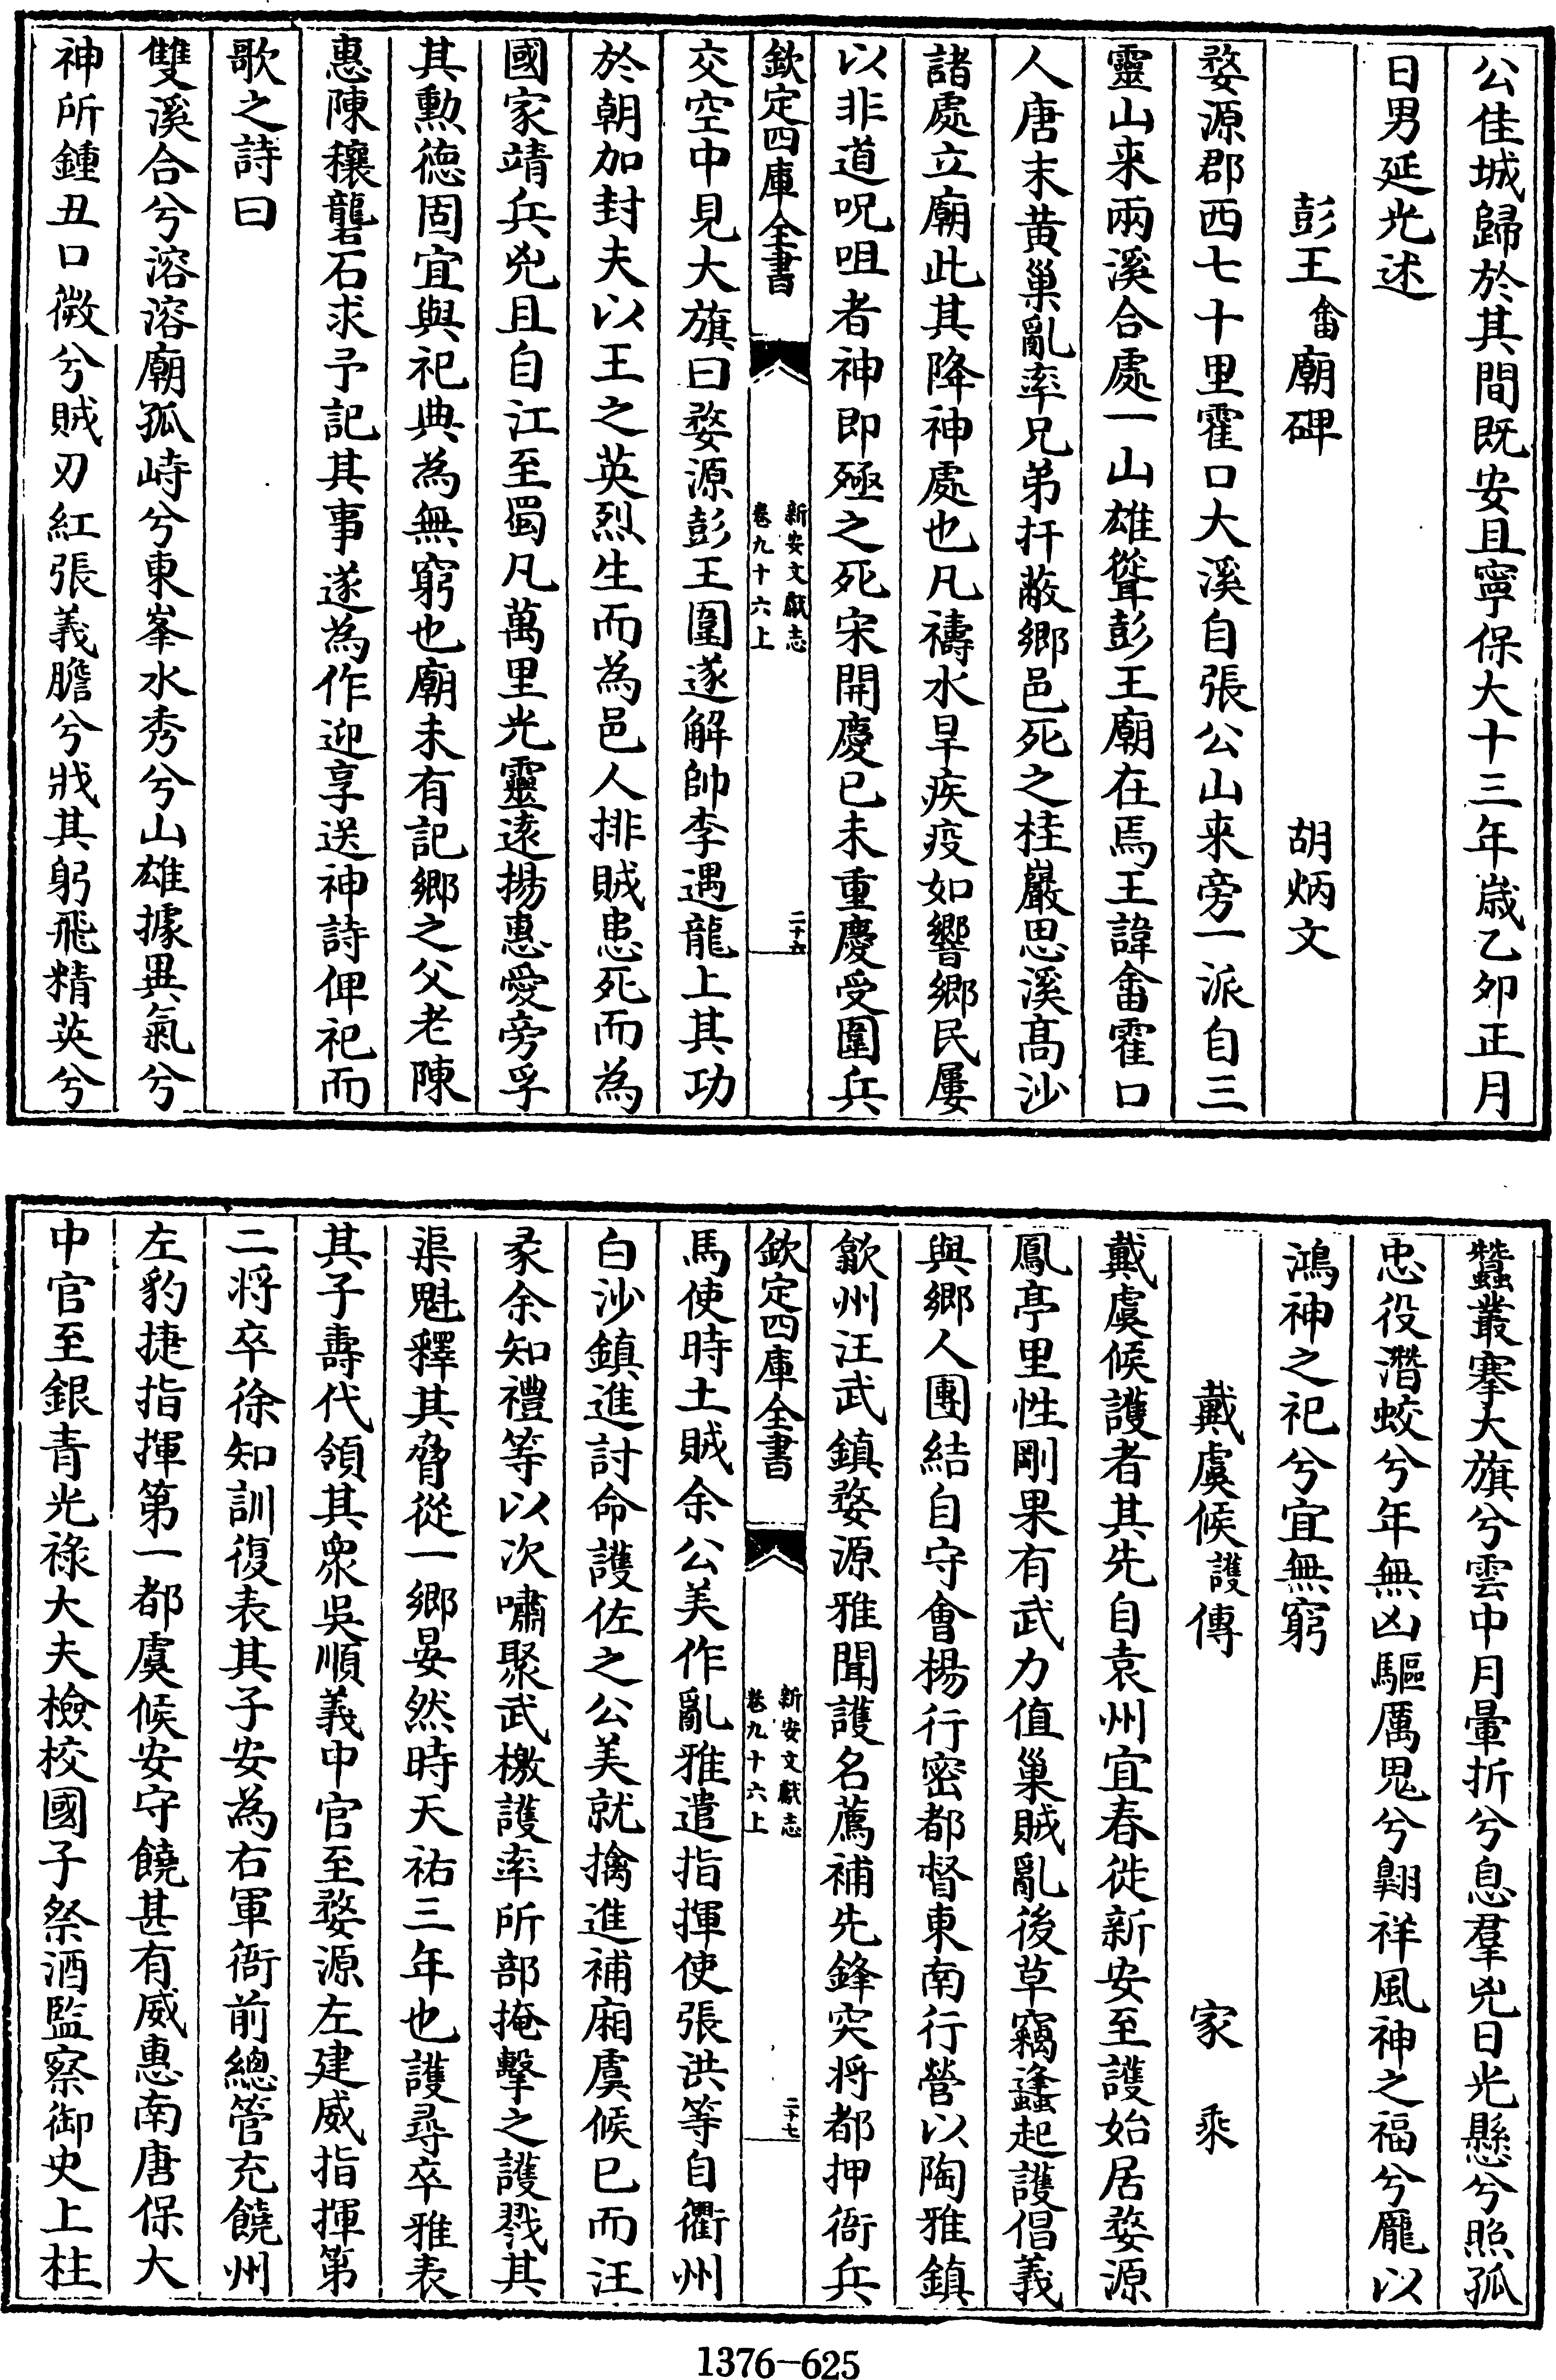 公佳城歸於其間既安且寧保大十三年歲乙夘正月
日男延光述
彭王畬廟碑　胡炳文
婺源郡西七十里霍口大溪自張公山来旁一派自三
靈山来兩溪合處一山雄聳彭王廟在焉王諱畬霍口
人唐末黄巢亂率兄弟扞蔽鄉邑死之桂巖思溪髙沙
諸處立廟此其降神處也凡禱水旱疾疫如響鄉民屢
以非道呪咀者神即殛之死宋開慶已未重慶受圍兵
欽定四庫全書　新安文獻志
卷九十六上　二十六
交空中見大旗曰婺源彭王圍遂解帥李遇龍上其功
於朝加封夫以王之英烈生而為邑人排賊患死而為
國家靖兵兇且自江至蜀凡萬里光靈逺揚惠愛旁孚
其勲徳固宜與祀典為無窮也廟未有記鄉之父老陳
惠陳穰礱石求予記其事遂為作迎享送神詩俾祀而
歌之詩曰
雙溪合兮溶溶廟孤峙兮東峯水秀兮兮山雄據異氣兮
神所鍾丑口微兮賊刃紅張義膽兮戕其躬飛精英兮
蠶叢搴大旗兮雲中月暈折兮息羣兇日光懸兮照孤
忠役潛蛟兮年無凶驅厲鬼兮翺祥風神之福兮厖以
鴻神之祀兮宜無窮
戴虞候護傳　家乘
戴虞候護者其先自袁州宜春徙新安至護始居婺源
鳳亭里性剛果有武力值巢賊亂後草竊蠭起護倡義
與鄉人團結自守會楊行密都督東南行營以陶雅鎮
歙州汪武鎮婺源雅聞護名薦補先鋒突将都押衙兵
欽定四庫全書　新安文獻志
卷九十六上　二十七
馬使時土賊余公美作亂雅遣指揮使張洪等自衢州
白沙鎮進討命護佐之公美就擒進補廂虞候已而汪
彖余知禮等以次嘯聚武檄護率所部掩擊之護戮其
渠魁釋其脅從一鄉晏然時天祐三年也護尋卒雅表
其子壽代領其衆吳順義中官至婺源左建威指揮第
二将卒徐知訓復表其子安為右軍衙前總管充饒州
左豹捷指揮第一都虞候安守饒甚有威惠南唐保大
中官至銀青光祿大夫檢校國子祭酒監察御史上柱
1376-625